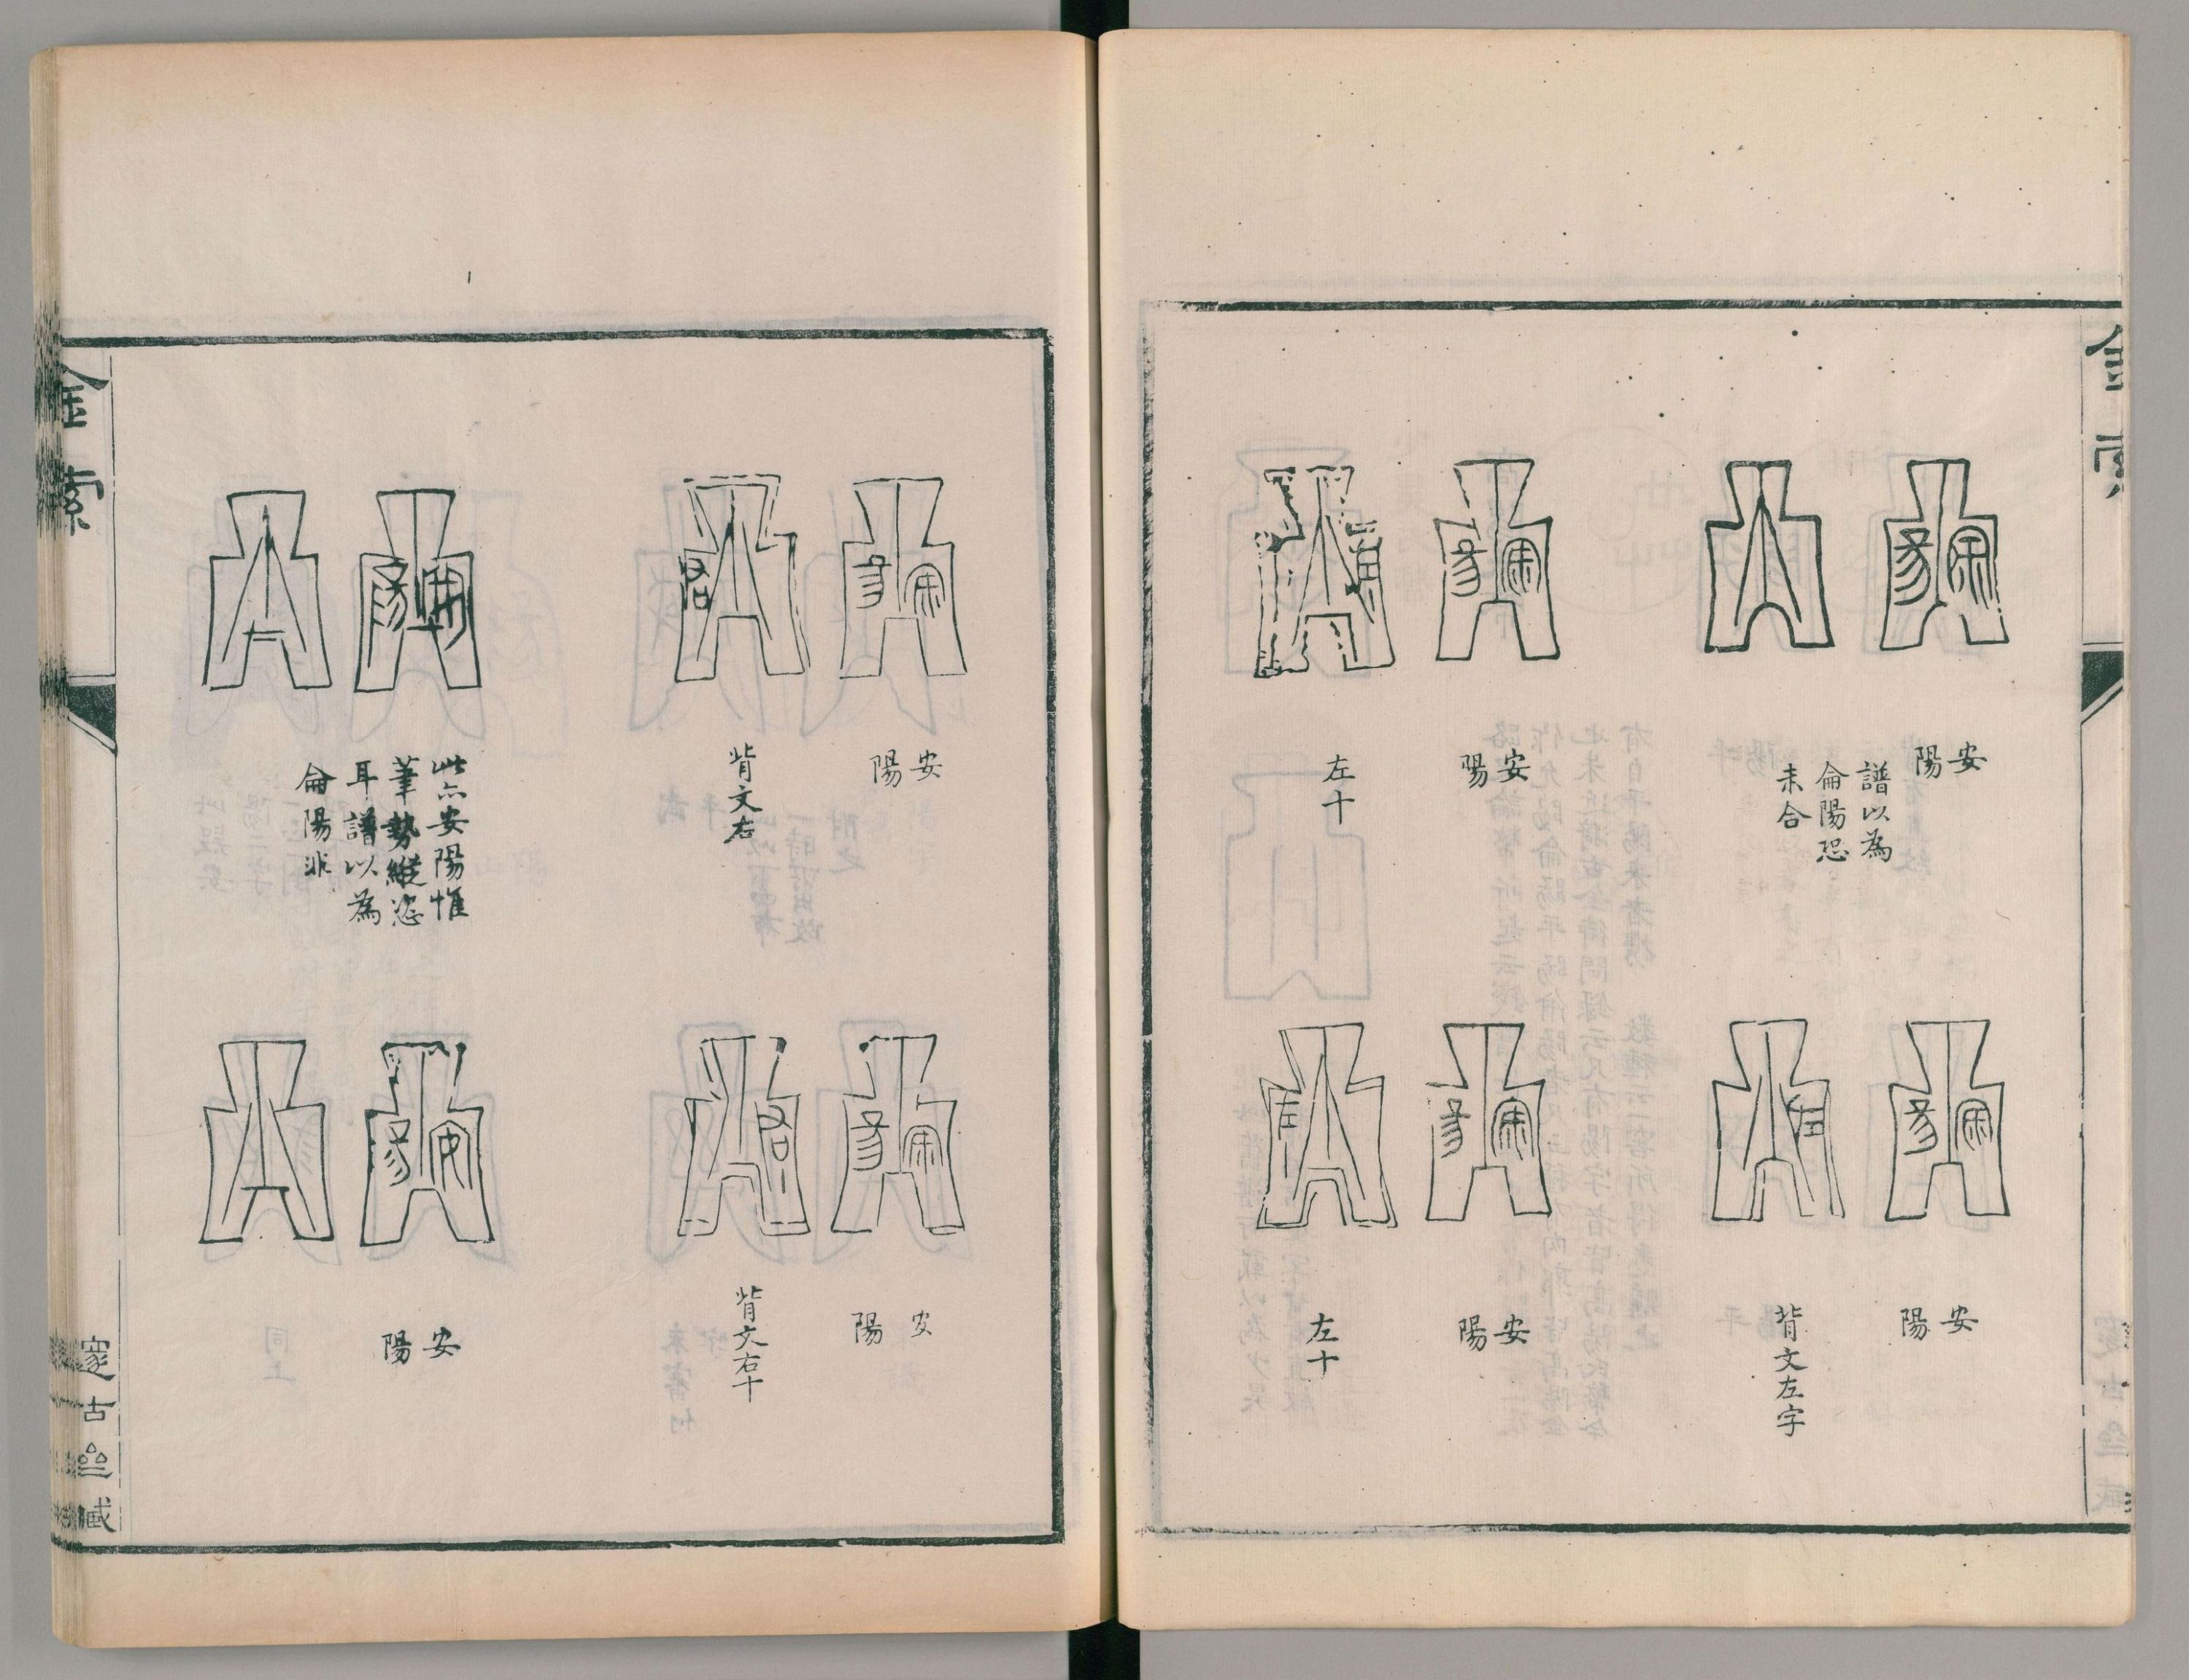 安
陽
譜以為
侖陽恐
未合
安
陽
左十
安
陽
背文左字
安
陽
左十
金索
安
陽
背文右
此亦安陽惟
筆勢縱恣
耳譜以為
侖陽非
安
陽
背文右十
安
陽
金索